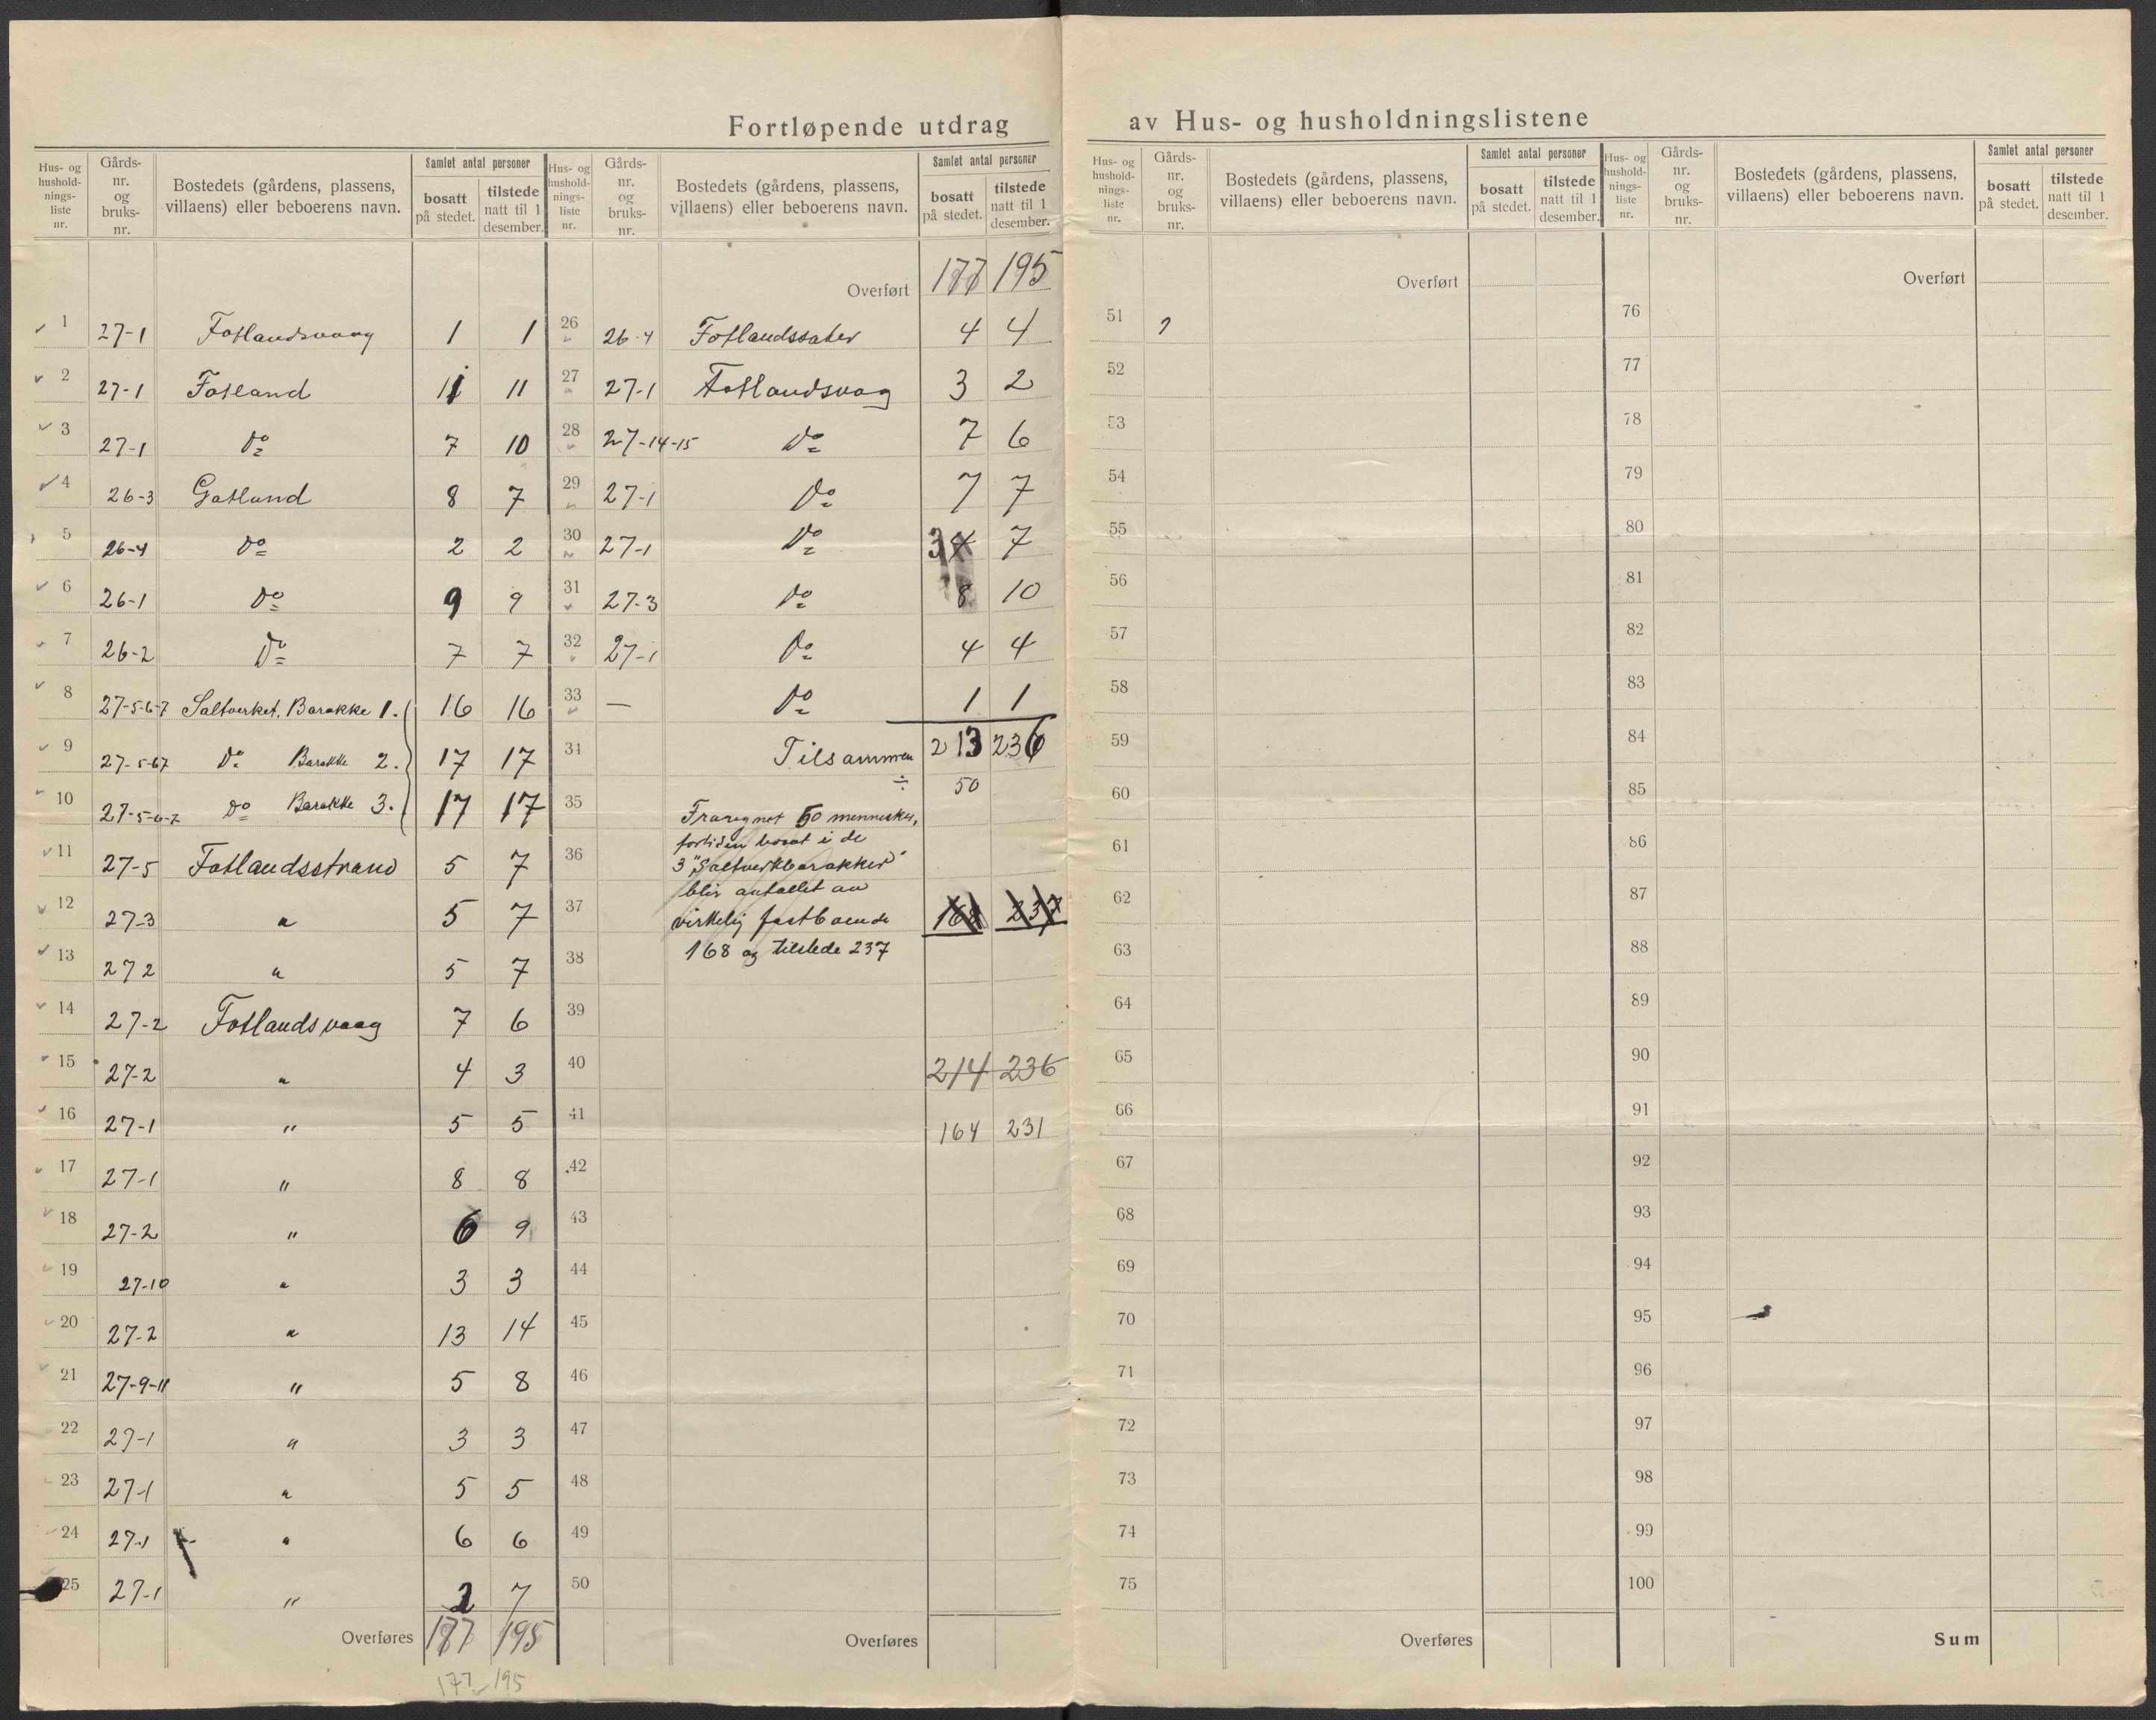 Fortløpende utdrag av Hus- og husholdningslistene
Hus- og hushold-nings-liste nr. | Gårds-nr. og bruks-nr. | Bostedets (gårdens, plassens, villaens) eller beboerens navn. | Samlet antal personer | bosatt på stedet. | tilstede natt til 1 desember.
1 27-1 Fotlandsvaag 1 1
2 27-1 Fotland 11 11
3 27-1 Do 7 10
4 26-3 Gotland 8 7
5 26-4 Do 2 2
6 26-1 Do 9 9
7 26-2 Do 7 7
8 27-5-6-7 Saltverket. Barakke 1. 16 16
9 27-5-67 Do Barakke 2. 17 17
10 27-5-6-7 Do Barakke 3. 17 17
11 27-5 Fotlandsstrand 5 7
12 27-3 " 5 7
13 27 2 " 5 7
14 27-2 Fotlandsvaag 7 6
15 27-2 " 4 3
16 27-1 " 5 5
17 27-1 " 8 8
18 27-2 " 6 9
19 27-10 " 3 3
20 27-2 " 13 14
21 27-9-11 " 5 8
22 27-1 " 3 3
23 27-1 " 5 5
24 27-1 " 6 6
25 27-1 " 2 7
Overføres 177 195
177 195
Hus- og hushold-nings-liste nr. | Gårds-nr. og bruks-nr. | Bostedets (gårdens, plassens, villaens) eller beboerens navn. | Samlet antal personer | bosatt på stedet. | tilstede natt til 1 desember.
Overført 177 195
26 26-4 Fotlandssæter 4 4
27 27-1 Fotlandsvag 3 2
28 27-14-15 Do 7 6
29 27-1 Do 7 7
30 27-1 Do 3 4 7
31 27-3 Do 8 10
32 27-1 Do 4 4
33 — Do 1 1
34 Tilsammen 213 236
÷ 50
35 Fraregnet 50 mennesker,
fortiden bosat i de
36 3 "Saltverkbarakker"
blir antallet av
37 virkelig fastboende 168 237
38 168 og tilstede 237
39
40 214 236
41 164 231
42
43
44
45
46
47
48
49
50
Overføres
Hus- og hushold-nings-liste nr. | Gårds-nr. og bruks-nr. | Bostedets (gårdens, plassens, villaens) eller beboerens navn. | Samlet antal personer | bosatt på stedet. | tilstede natt til 1 desember.
Overført
51
52
53
54
55
56
57
58
59
60
61
62
63
64
65
66
67
68
69
70
71
72
73
74
75
Overføres
Hus- og hushold-nings-liste nr. | Gårds-nr. og bruks-nr. | Bostedets (gårdens, plassens, villaens) eller beboerens navn. | Samlet antal personer | bosatt på stedet. | tilstede natt til 1 desember.
Overført
76
77
78
79
80
81
82
83
84
85
86
87
88
89
90
91
92
93
94
95
96
97
98
99
100
Sum